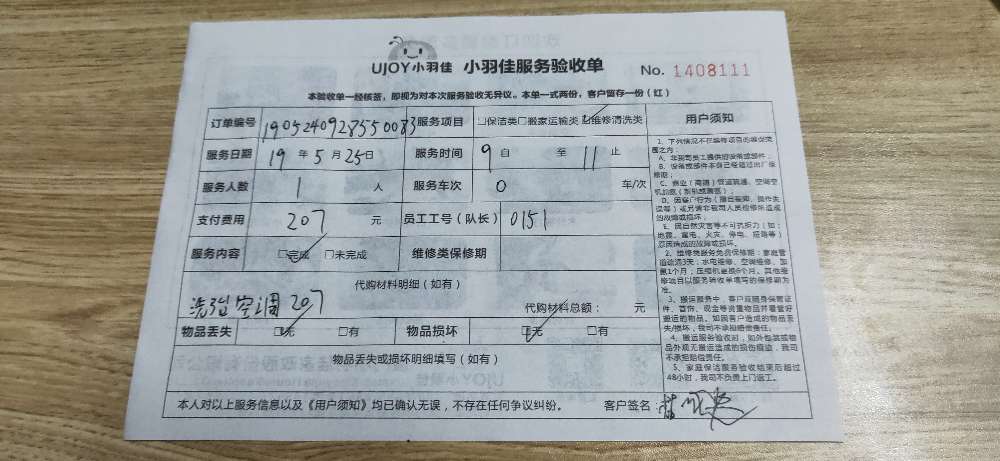 UJOY小羽佳 小羽佳服务验收单 No. 1408111
本验收单一经核签，即视为对本次服务验收无异议。本单一式两份，客户留存一份（红）
订单编号 1905240928550083 服务项目 □保洁类□搬家运输类□维修清洗类
服务日期 19 年 5 月 25日 服务时间 9 自 至 11 止
服务人数 1 人 服务车次 0 车/次
支付费用 207 元 员工工号（队长） 0151
服务内容 □完成 □未完成 维修类保修期
代购材料明细（如有）
207
代购材料总额： 元
物品丢失 □无 □有 物品损坏 □无 □有
物品丢失或损坏明细填写（如有）
本人对以上服务信息以及《用户须知》均已确认无误，不存在任何争议纠纷。 客户签名：
用户须知
1、下列情况不在维修项目的维保范
围之内：
A、非我司员工提供的设备或部件；
B、设备或部件本身已经超过出厂保
修期；
E、因自然灾害等不可抗拒力（如：
地震、雷电、火灾、停电、超高等）
忍而造成的故障或损坏。
2、维修类服务免费保修期：家庭管
道疏通3天；水电维修、空调维修、加
氟1个月；压缩机更换6个月。其他维
修项目以服务验收单填写的保修期为
准。
3、搬运服务中，客户应随身保管证
件、首饰、现金等贵重物品并看管好
搬运的物品。如因客户造成的物品丢
失/损坏，我司不承担赔偿责任。
4、搬运服务验收时，如外包装或物
品外观无搬运造成的损伤痕迹，我司
不承担赔偿责任。
5、家庭保洁服务验收结束后超过
48小时，我司不负责上门返工。